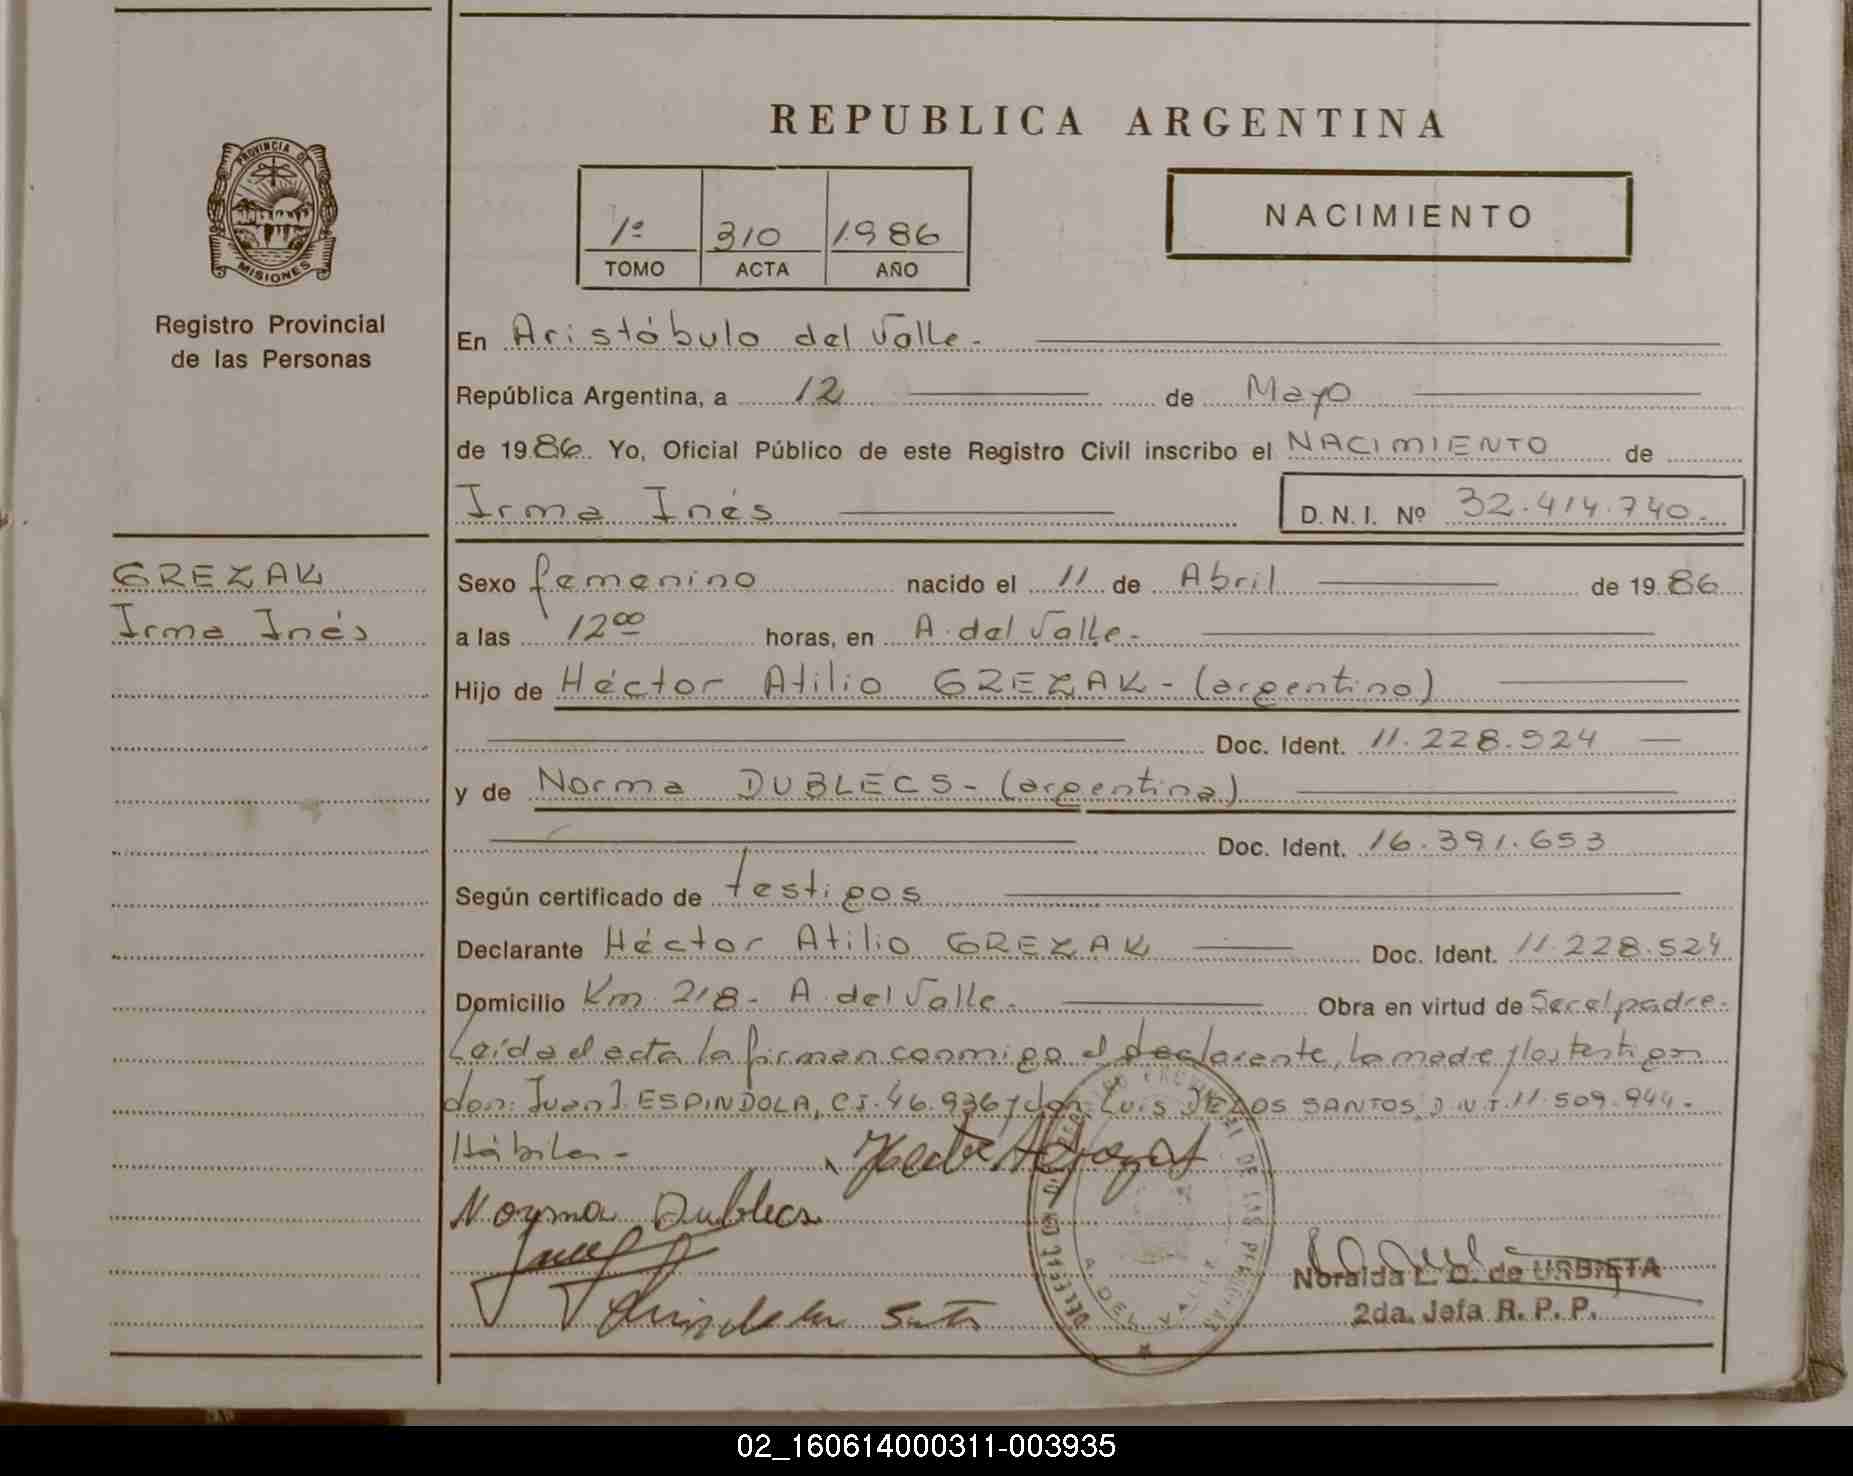 REPUBLICA ARGENTINA
PROVINCIA DE
MISIONES
Registro Provincial
de las Personas
1º 310 1986
TOMO ACTA AÑO
NACIMIENTO
En Aristóbulo del Valle.-
República Argentina, a 12 de Mayo
de 1986. Yo, Oficial Público de este Registro Civil inscribo el NACIMIENTO de
Irma Inés D. N. I. Nº 32.414.740.-
GREZAK
Irma Inés
Sexo femenino nacido el 11 de Abril de 1986
a las 12⁰⁰ horas, en A. del Valle.-
Hijo de Héctor Atilio GREZAK - (argentino)
Doc. Ident. 11.228.524
y de Norma DUBLECS - (argentina)
Doc. Ident. 16.391.653
Según certificado de testigos
Declarante Héctor Atilio GREZAK Doc. Ident. 11.228.524
Domicilio Km. 218 - A. del Valle.- Obra en virtud de Ser el padre.-
Leída el acta la firman conmigo el declarante, la madre y los testigos
don: Juan J. ESPINDOLA, C.I. 46.936 y don Luis DE LOS SANTOS, D.N.I. 11.509.944.-
Hábiles -
Norma Dublecs
Noralda L. O. de URBIETA
2da. Jefa R. P. P.
02_160614000311-003935